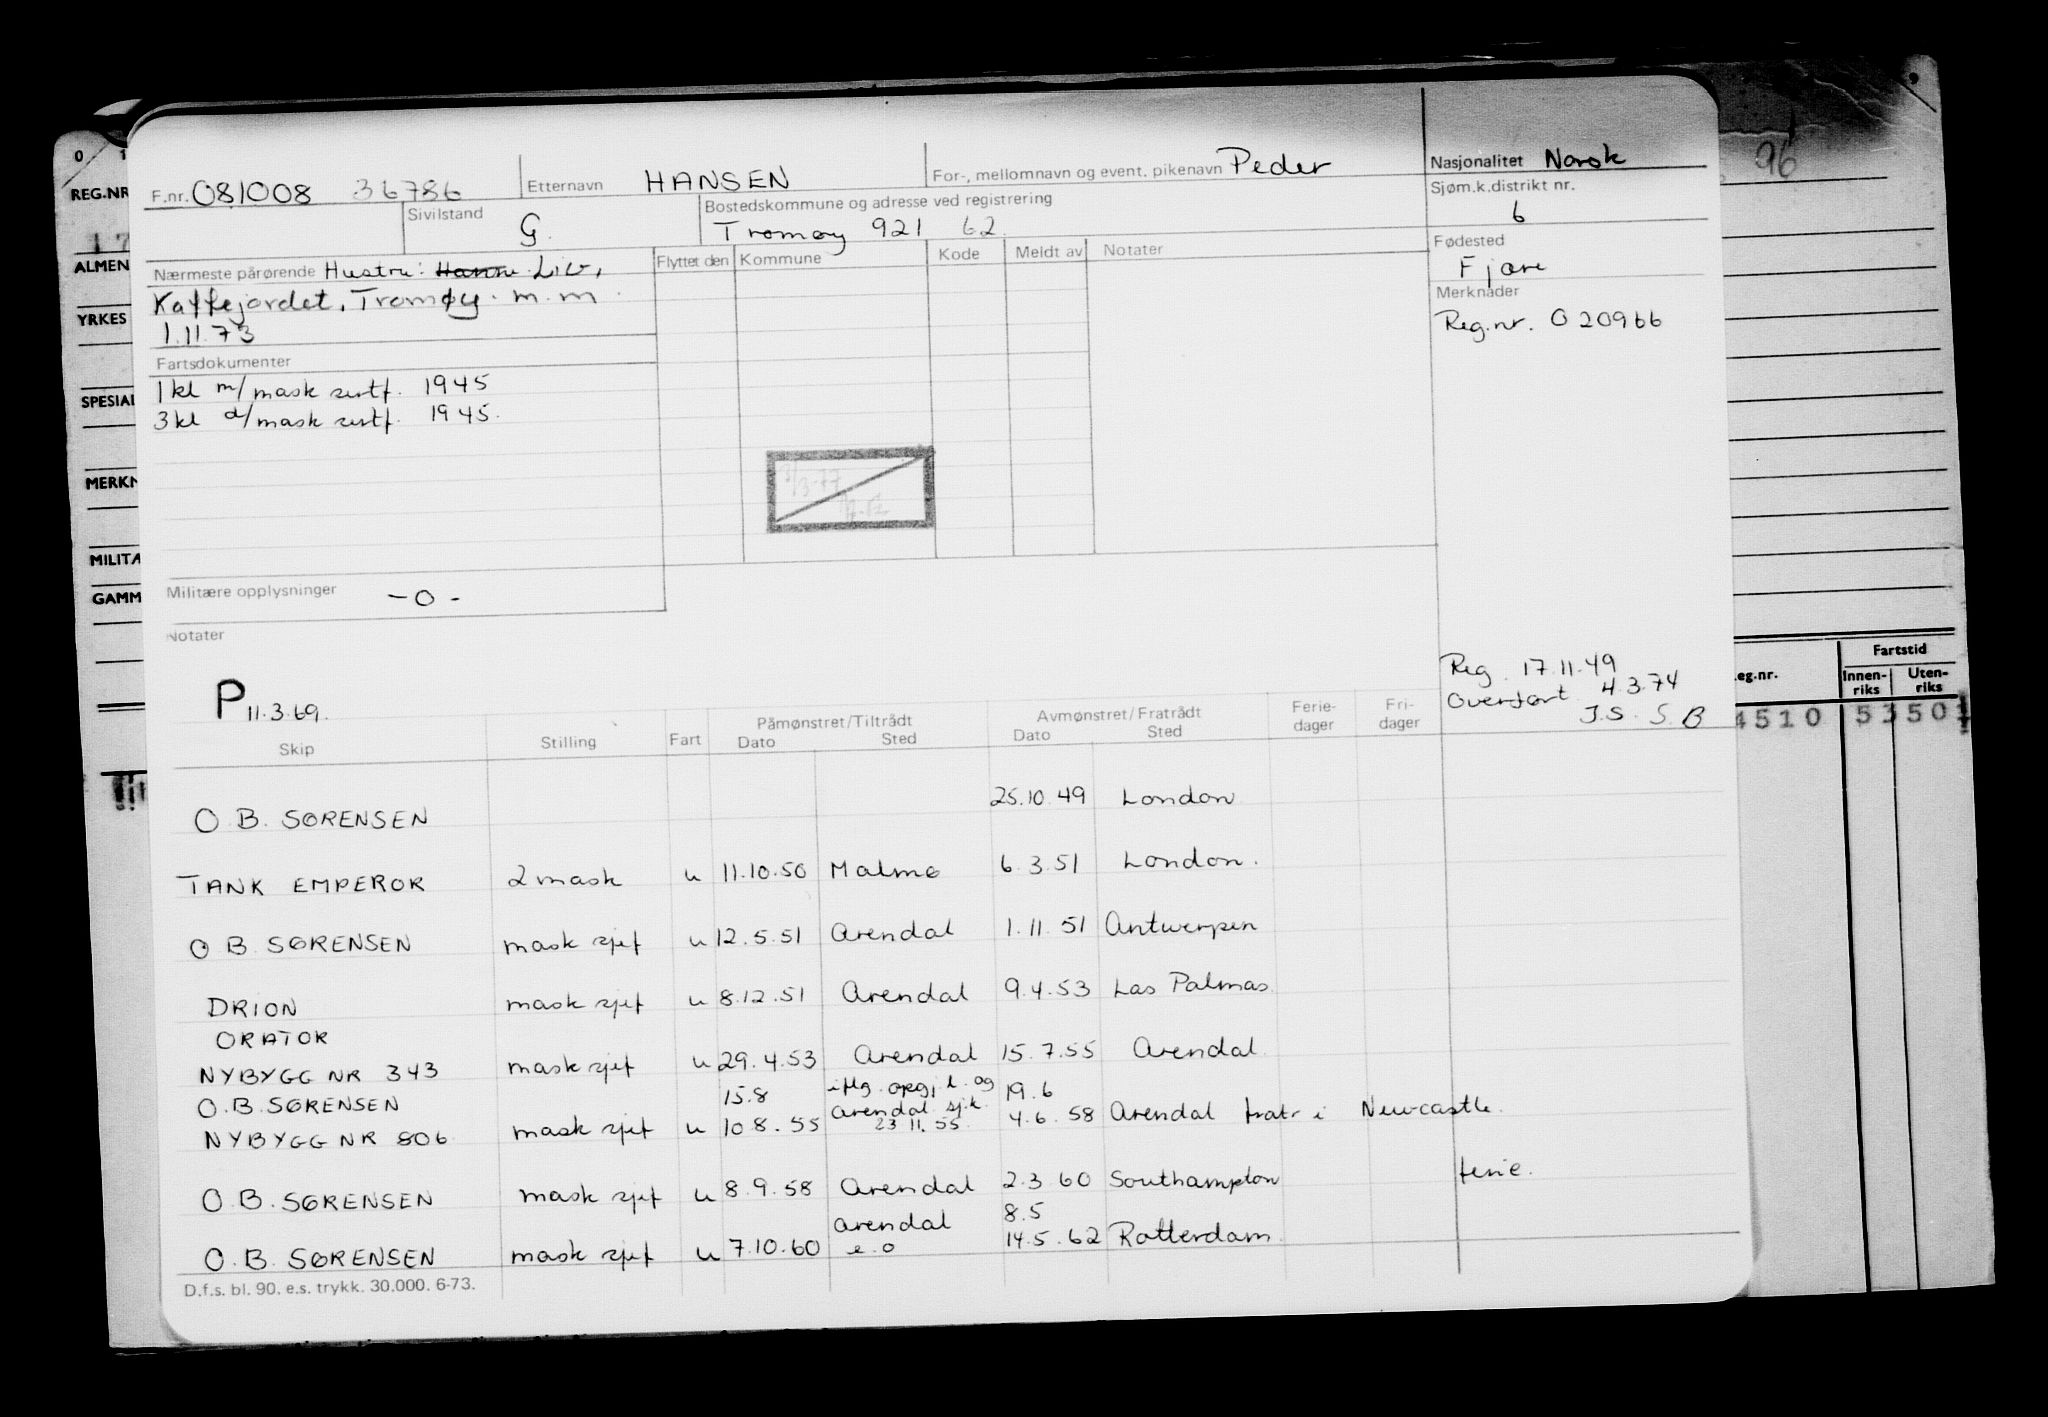 0 1
REG.NR
ALMEN
YRKES
SPESIAL
MERKN
MILITÆ
GAMM
F.nr. 081008 36786 Etternavn HANSEN For-, mellomnavn og event. pikenavn Peder Nasjonalitet Norsk
96
Sivilstand G. Bostedskommune og adresse ved registrering Tromøy 921 62. Sjøm.k.distrikt nr. 6
Nærmeste pårørende Hustru: Hanne Liv, Flyttet den Kommune Kode Meldt av Notater Fødested Fjære
Kaffejordet, Tromøy. m.m.
1.11.73
Merknader
Reg.nr. 020966
Fartsdokumenter
1kl m/mask sertf. 1945
3kl d/mask sertf. 1945.
Militære opplysninger -0-
Notater
P 11.3.69.
Reg. 17.11.49
Overført 4.3.74
J.S. S.B
eg.nr. Fartstid
Innen-riks Uten-riks
4510 53501
Skip Stilling Fart Påmønstret/Tiltrådt Dato Sted Avmønstret/Fratrådt Dato Sted Ferie-dager Fri-dager
O.B. SØRENSEN 25.10.49 London
TANK EMPEROR 2 mask u 11.10.50 Malmø 6.3.51 London.
O B SØRENSEN mask sjef u 12.5.51 Arendal 1.11.51 Antwerpen
DRION mask sjef u 8.12.51 Arendal 9.4.53 Las Palmas.
ORATOR
NYBYGG NR 343 mask sjef u 29.4.53 Arendal 15.7.55 Arendal.
O.B. SØRENSEN 15.8 iflg. oppg. l. og 19.6
NYBYGG NR 806 mask sjef u 10.8.55 Arendal sj.k. 23 11.55. 4.6.58 Arendal fratr i Newcastle.
O.B. SØRENSEN mask sjef u 8.9.58 Arendal 2.3.60 Southampton ferie.
O.B. SØRENSEN mask sjef u 7.10.60 Arendal e.o 8.5 14.5.62 Rotterdam.
D.f.s. bl. 90. e.s. trykk. 30.000. 6-73.